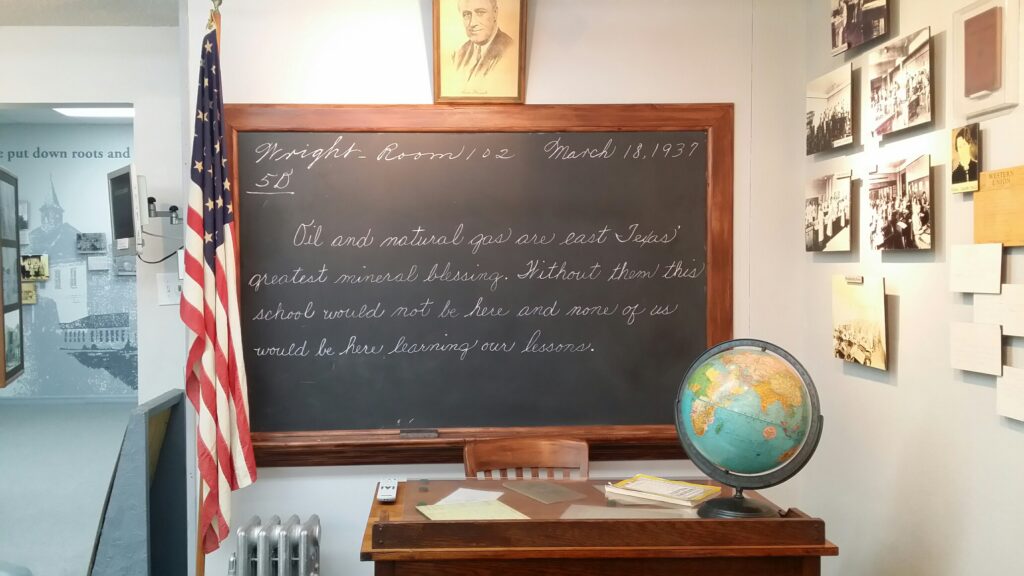 put down roots and
Wright - Room 102 March 18, 1937
5B
Oil and natural gas are east Texas'
greatest mineral blessing. Without them this
school would not be here and none of us
would be here learning our lessons.
WESTERN
UNION